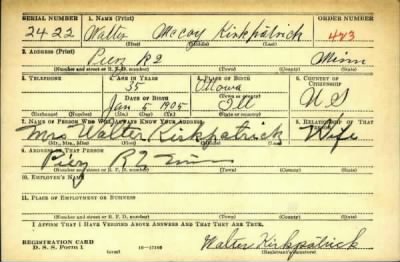 SERIAL NUMBER 1. NAME (Print) ORDER NUMBER
2422 Walter McCoy Kirkpatrick 473
(First) (Middle) (Last)
2. ADDRESS (Print)
Pierz R2 Minn
(Number and street or R. F. D. number) (Town) (County) (State)
3. TELEPHONE 4. AGE IN YEARS 5. PLACE OF BIRTH 6. COUNTRY OF CITIZENSHIP
35 Ottowa
DATE OF BIRTH
Jan 5 1905 Ill U S
(Mo.) (Day) (Yr.)
7. NAME OF PERSON WHO WILL ALWAYS KNOW YOUR ADDRESS 8. RELATIONSHIP OF THAT
Mrs Walter Kirkpatrick Wife
(Mr., Mrs., Miss) (First) (Middle) (Last)
9. ADDRESS OF THAT PERSON
Pierz R2 Minn
(Number and street or R. F. D. number) (Town) (County) (State)
10. EMPLOYER'S NAME
11. PLACE OF EMPLOYMENT OR BUSINESS
(Number and street or R. F. D. number) (Town) (County) (State)
I AFFIRM THAT I HAVE VERIFIED ABOVE ANSWERS AND THAT THEY ARE TRUE.
REGISTRATION CARD
D. S. S. Form 1 Walter Kirkpatrick
(Registrant's signature)